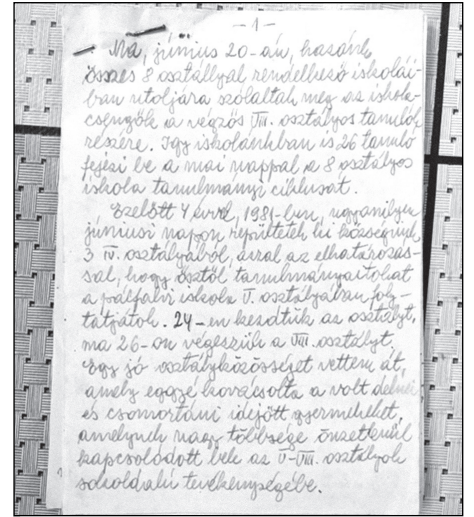 -1-
Ma, június 20-án, hazánk
összes 8 osztállyal rendelkező iskolái-
ban utoljára szólaltak meg az iskola-
csengők a végzős VIII. osztályos tanulók
részére. Így iskolánkban is 26 tanuló
fejezi be a mai nappal a 8 osztályos
iskola tanulmányi ciklusát.
Ezelőtt 4 évvel, 1981-ben, ugyanilyen
júniusi napon repültetek ki községünk
3 IV. osztályából, azzal az elhatározás-
sal, hogy ősztől tanulmányaitokat
a pálfalvi iskola V. osztályában foly-
tatjátok. 24-en kezdtük az osztályt,
ma 26-on végezzük a VIII. osztályt.
Egy jó osztályközösséget vettem át,
amely eggyé kovácsolta a volt delnei
és csomortáni idejött gyermekeket,
amelynek nagy többsége önzetlenül
kapcsolódott bele az V-VIII. osztályok
sokoldalú tevékenységébe.